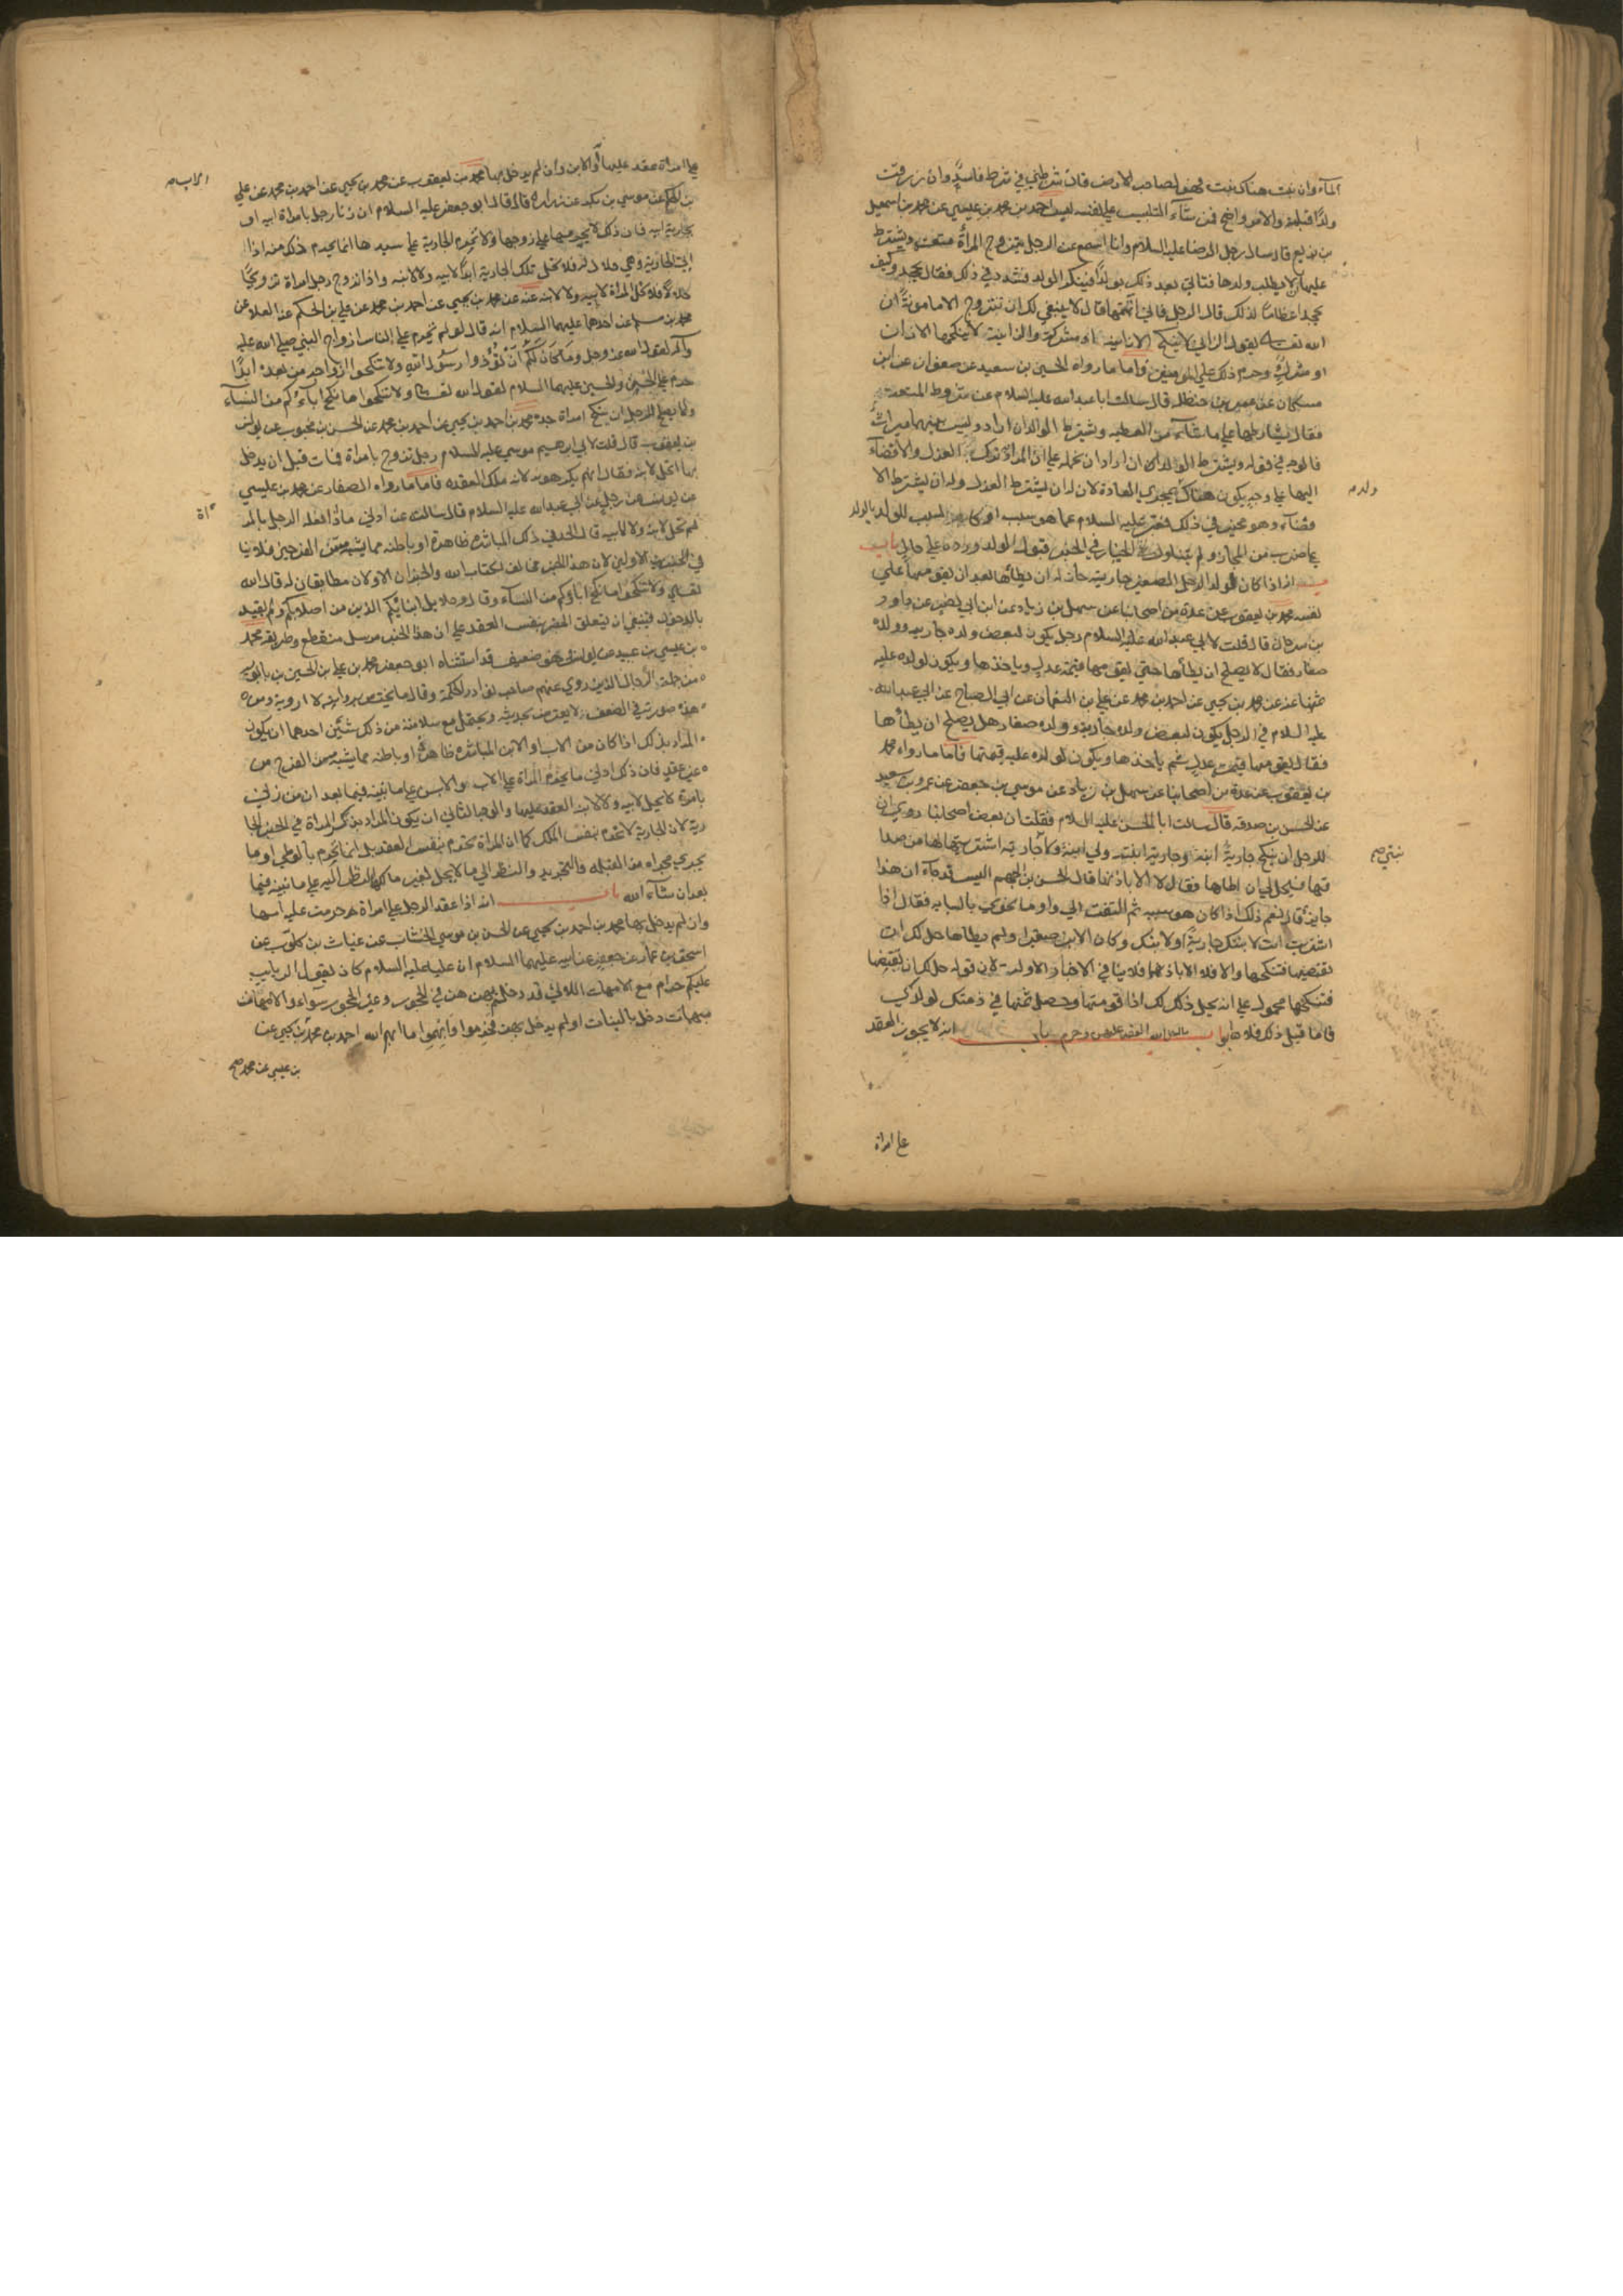 المآء وان نبت هناك نبت فهو لصاحب الارض فان شرطين في شرط فاسد وان رزقت
ولدًا قبله والامر واضح فمن شآء التلبيس على نفسه لبس احمد بن محمد بن عيسى عن محمد بن اسمعيل
بن بزيع قال سال رجل الرضا عليه السلام وانا اسمع عن الرجل يتزوج المرأة متعة ويشترط
عليها ان لا يطلب ولدها فتاتي بعد ذلك بولد فينكر الولد فشدد في ذلك فقال يجحد وكيف
يجحد اعظامًا لذلك قال الرجل فاني اتهمها قال لا ينبغي لك ان تتزوج الا مامونة ان
الله تعالى يقول الزاني لا ينكح الا زانية او مشركة والزانية لا ينكحها الا زان
او مشرك وحرم ذلك على المؤمنين فاما ما رواه الحسين بن سعيد عن صفوان عن ابن
مسكان عن عمر بن حنظله قال سالت ابا عبد الله عليه السلام عن شروط المتعة
فقال يشارطها على ما شآء من العطيه ويشترط الولد ان اراد وليس بينهما ميراث
فالوجه في قوله ويشترط الولد ان اراد ان نحمله على ان المراد ترك العزل والافضآء
اليها على وجه يكون هناك مجرى العادة لان له ان يشترط العزل وله ان يشترط الا
ولد
فضآء وهو مخير في ذلك فعبر عليه السلام عما هو سبب او كالسبب للولد بالولد
على ضرب من المجاز ولم يتناول الخيار في الخبر قبول الولد ورده على حال باب
انه اذا كان لولد الرجل الصغير جارية جاز له ان يطأها بعد ان يقومها على
نفسه محمد بن يعقوب عن عدة من اصحابنا عن سهل بن زياد عن ابن ابي نصر عن داود
بن سرحان قال قلت لابي عبد الله عليه السلام رجل يكون لبعض ولده جاريه وولده
صغار فقال لا يصلح ان يطأها حتى يقومها قيمة عدل وياخذها ويكون لولده عليه
ثمنها عنه عن محمد بن يحيى عن احمد بن محمد عن علي بن النعمان عن ابي الصباح عن ابي عبد الله
عليه السلام في الرجل يكون لبعض ولده جارية وولده صغار هل يصلح ان يطأها
فقال يقومها قيمة عدل ثم يأخذها ويكون لولده عليه قيمتها فاما ما رواه محمد
بن يعقوب عن عدة من اصحابنا عن سهل بن زياد عن موسى بن جعفر عن عمرو بن سعيد
عن الحسن بن صدقه قال سالت ابا الحسن عليه السلام فقلت ان بعض اصحابنا روى ان
للرجل ان ينكح جارية ابنه وجارية ابنته ولي ابنة وجارية اشتريتها لها من صدا
قها فيحل لي ان اطاها فقال لا الا باذنها قال الحسن بن الجهم اليس قد جآء ان هذا
جايز قال نعم ذلك اذا كان هو سببه ثم التفت الي واوما نحوي بالسبابه فقال اذا
اشتريت انت لابنتك جارية او لابنك وكان الابن صغيرا ولم يطاها حل لك ان
تقتضها فتنكحها والا فلا الا باذنهما فلا ينافي الاخبار الاوله لان قوله حل لك ان تقتضها
فتنكحها محمول على انه يحل ذلك لك اذا قومتها وحصل ثمنها في ذمتك لولدك
فاما قبل ذلك فلا باب انه لا يجوز العقد
على امراة
على امراة عقد عليها الاب او الابن وان لم يدخل بها محمد بن يعقوب عن محمد بن يحيى عن احمد بن محمد عن علي
بن الحكم عن موسى بن بكر عن زراره قال قال ابو جعفر عليه السلام ان زنا رجل بامراة ابيه او
بجارية ابيه فان ذلك لا يحرمها على زوجها ولا تحرم الجارية على سيدها انما يحرم ذلك منه اذا
اتى الجارية وهي حلال له فلا تحل تلك الجارية ابدًا لابيه ولا لابنه واذا تزوج رجل امراة تزويجًا
حلالًا فلا تحل المراة لابيه ولا لابنه عنه عن محمد بن يحيى عن احمد بن محمد عن علي بن الحكم عن العلا عن
محمد بن مسلم عن احدهما عليهما السلام انه قال لو لم تحرم على الناس ازواج النبي صلى الله عليه
وآله لقول الله عز وجل وما كان لكم ان تؤذوا رسول الله ولا تنكحوا ازواجه من بعده ابدًا
حرم على الحسن والحسين عليهما السلام لقول الله تعالى ولا تنكحوا ما نكح اباءكم من النسآء
ولا يصلح للرجل ان ينكح امراة جده محمد بن احمد بن يحيى عن احمد بن محمد عن الحسن بن محبوب عن يونس
بن يعقوب قال قلت لابي ابرهيم موسى عليه السلام رجل تزوج بامراة فمات قبل ان يدخل
بها اتحل لابنه فقال انهم يكرهونه لانه ملك العقده فاما ما رواه الصفار عن محمد بن عيسى
عن يونس عن رجل عن ابي عبد الله عليه السلام قال سالته عن ادنى ما اذا فعله الرجل بالمر
اة
لم تحل لابنه ولا لابيه قال الحد في ذلك المباشره ظاهرة او باطنه مما يشبه مس الفرجين فلا ينا
في الخبرين الاولين لان هذا الخبر مخالف لكتاب الله والخبران الاولان مطابقان له قال الله
تعالى ولا تنكحوا ما نكح اباؤكم من النسآء وقال وحلايل ابنائكم الذين من اصلابكم ولم يقيد
بالدخول فينبغي ان يتعلق الحضر بنفس العقد على ان هذا الخبر مرسل منقطع وطريقه محمد
بن عيسى بن عبيد عن يونس وهو ضعيف قد استثناه ابو جعفر محمد بن علي بن الحسين بن بابويه
من جملة الرجال الذين روى عنهم صاحب نوادر الحكمة وقال ما يختص بروايته لا ارويه ومن
هذه صورته في الضعف لا يعترض بحديثه ويحتمل مع سلامته من ذلك شئين احدهما ان يكون
المراد بذلك اذا كان من الاب او الابن المباشره ظاهرة او باطنه مما يشبه مس الفرج من
غير عقد فان ذلك ادنى ما يحرم المراة على الاب والابن على ما نبينه فيما بعد ان من زنى
بامراة لا يحل لابيه ولا لابنه العقد عليها والوجه الثاني ان يكون المراد بذكر المراة في الخبر الجا
رية لان الجارية لا تحرم بنفس الملك كما ان المراة تحرم بنفس العقد بل انما تحرم بالوطي او ما
يجري مجراه من القبله والتجريد والنظر الى ما لا يحل لغير مالكها النظر اليه على ما نبينه فيما
بعد ان شآء الله باب انه اذا عقد الرجل على امراة حرمت عليه امها
وان لم يدخل بها محمد بن احمد بن يحيى عن الحسن بن موسى الخشاب عن غياث بن كلوب عن
اسحق بن عمار عن جعفر عن ابيه عليهما السلام ان عليا عليه السلام كان يقول الربايب
عليكم حرام مع الامهات اللاتي قد دخلتم بهن هن في الحجور وغير الحجور سوآء والامهات
مبهمات دخل بالبنات او لم يدخل بهن فحرموا وابهموا ما ابهم الله احمد بن محمد بن يحيى عن
بن عيسى عن محمد صح